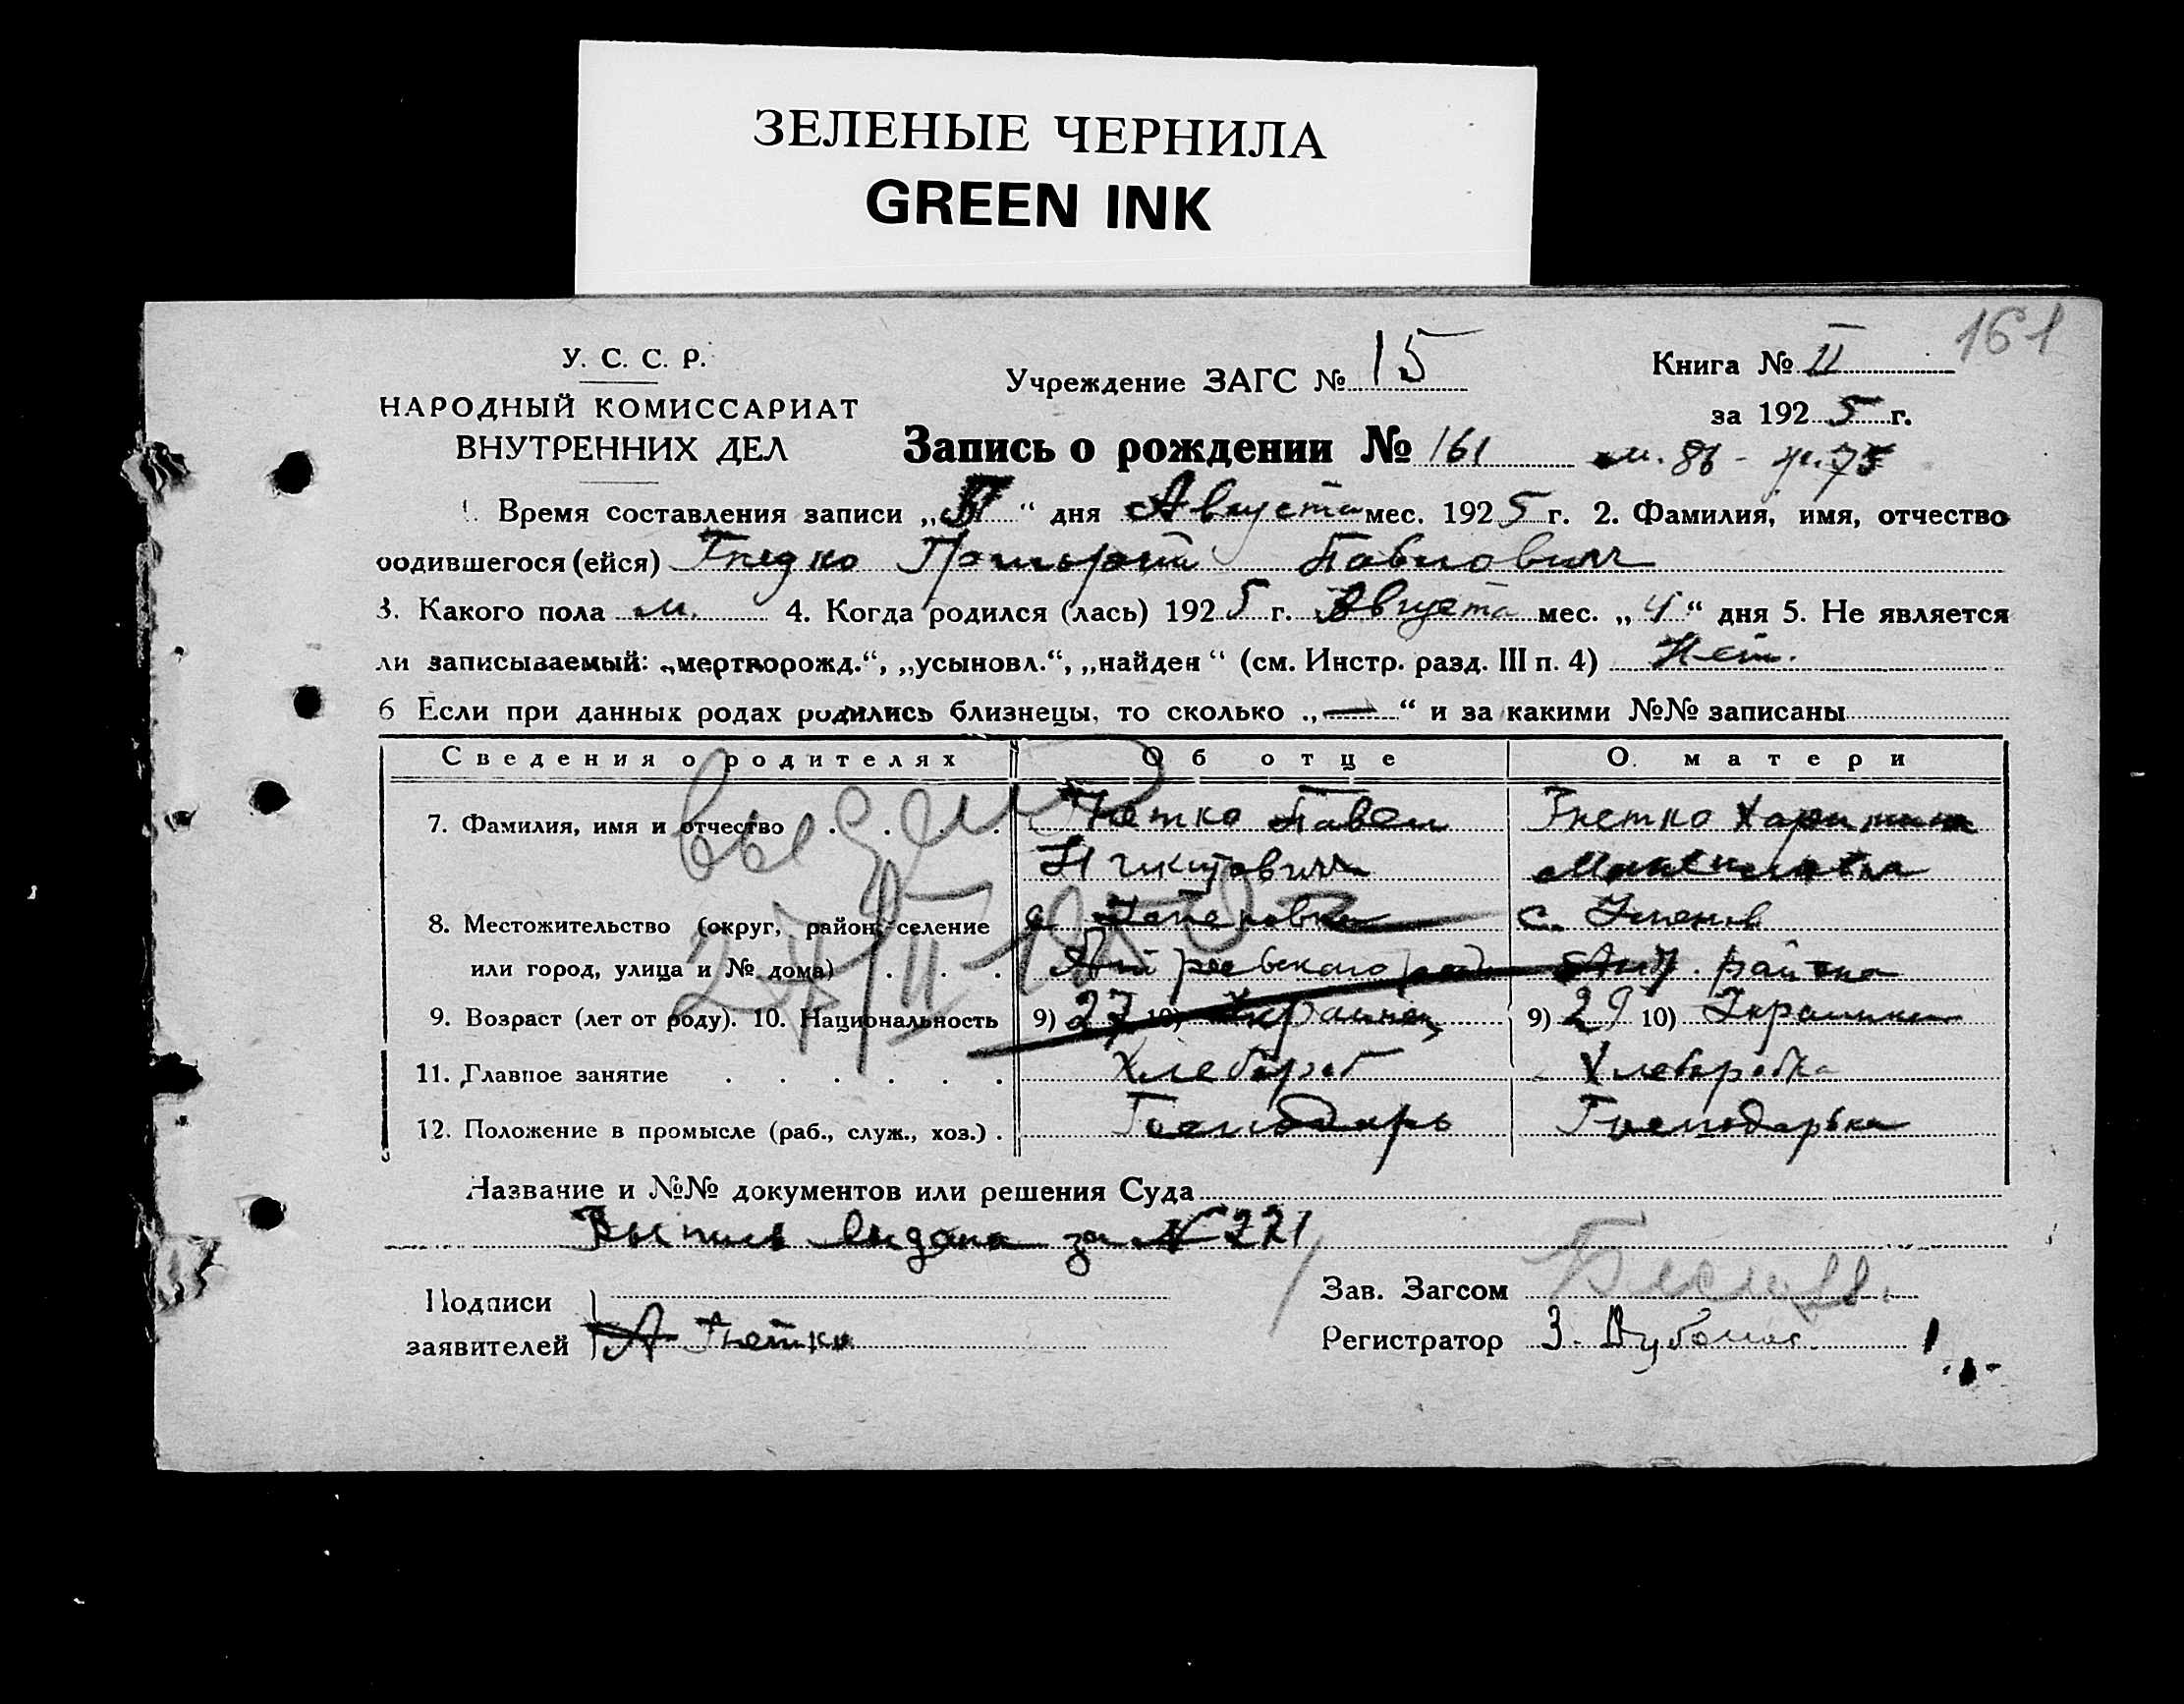 ЗЕЛЕНЫЕ ЧЕРНИЛА
GREEN INK
161
У. С. С. Р.
НАРОДНЫЙ КОМИССАРИАТ
ВНУТРЕННИХ ДЕЛ
Учреждение ЗАГС № 15
Книга № II
за 1925 г.
Запись о рождении № 161 м. 86 - 75
1. Время составления записи „ “ дня Августа мес. 1925 г. 2. Фамилия, имя, отчество
родившегося (ейся) Гнедко Григорий Павлович
3. Какого пола м. 4. Когда родился (лась) 1925 г. Августа мес. „4“ дня 5. Не является
ли записываемый: „мертворожд.“, „усыновл.“, „найден“ (см. Инстр. разд. III п. 4) Нет.
6 Если при данных родах родились близнецы, то сколько „—“ и за какими №№ записаны
Сведения о родителях Об отце О матери
7. Фамилия, имя и отчество Гнетко Павел Гнетко Харитина
Никитович
8. Местожительство (округ, район, селение с. с.
или город, улица и № дома) района
9. Возраст (лет от роду). 10. Национальность 9) 27 10) Украинец 9) 29 10) Украинка
11. Главное занятие Хлебороб Хлеборобка
12. Положение в промысле (раб., служ., хоз.) Господарь Господарька
Название и №№ документов или решения Суда
Выпись выдана за № 221
Подписи
заявителей А Гнетко
Зав. Загсом
Регистратор З.